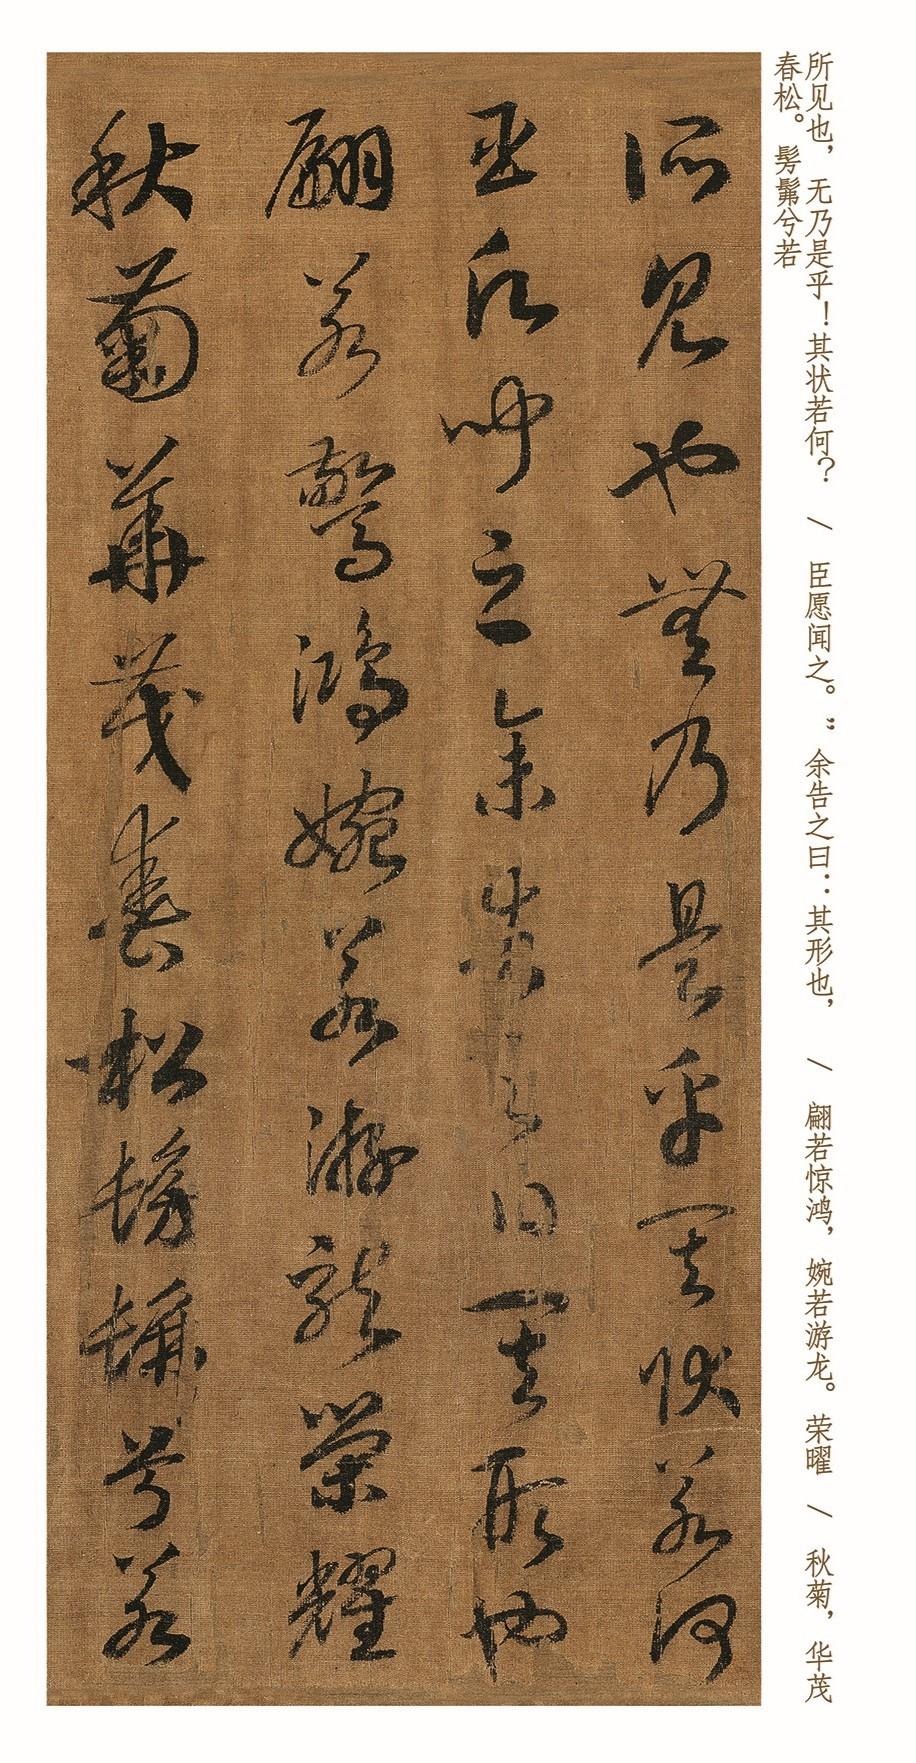 所见也，无乃是乎！其状若何？ / 臣愿闻之。” 余告之曰：其形也， / 翩若惊鸿，婉若游龙。荣曜 / 秋菊，华茂
春松。髣髴兮若
所見也無乃是乎其狀若何
臣願聞之余告之曰其形也
翩若驚鴻婉若游龍榮耀
秋菊華茂春松髣髴兮若